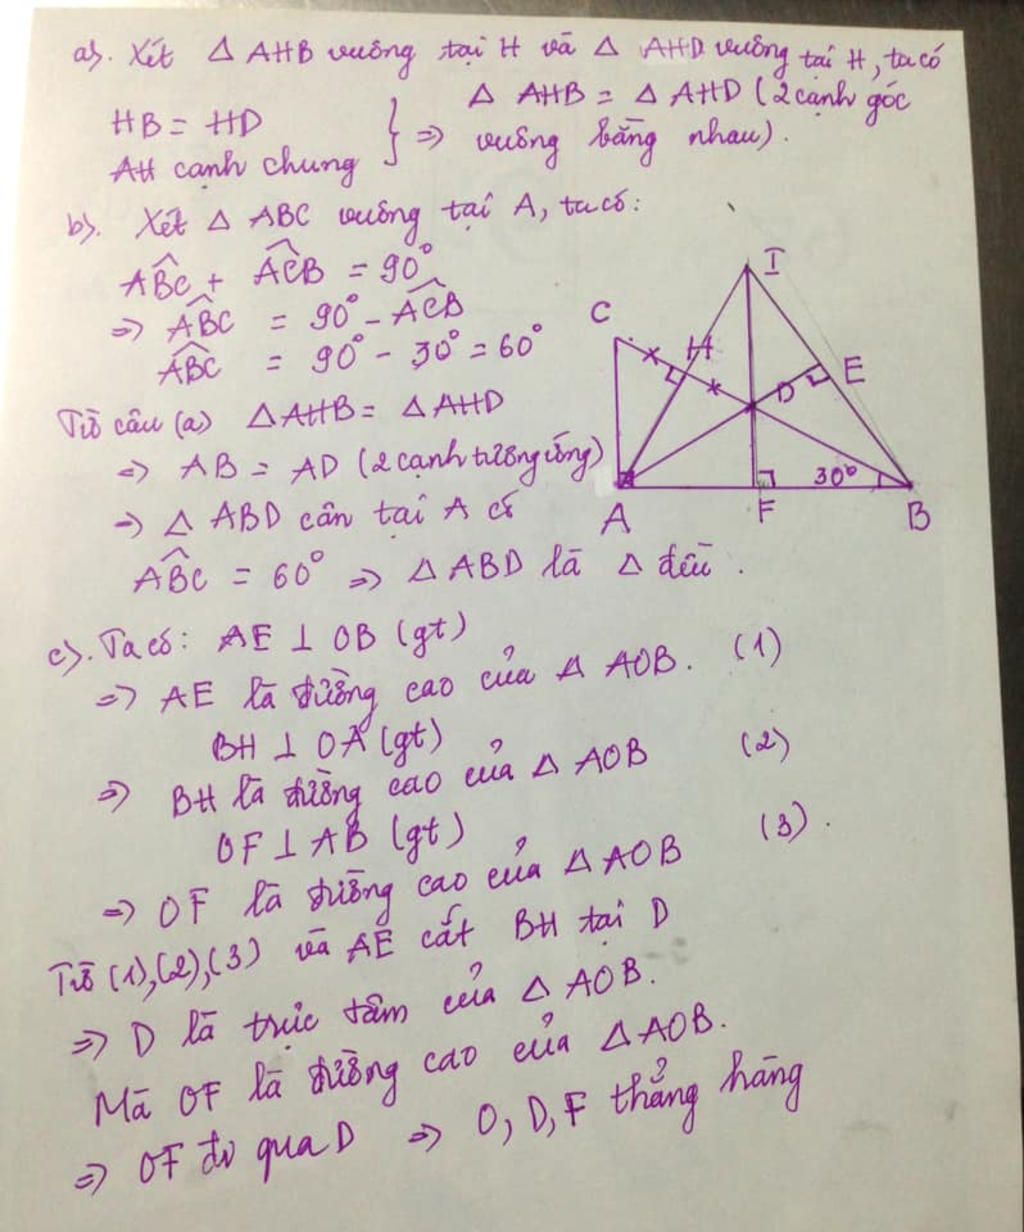 a). Xét Δ AHB vuông tại H và Δ AHD vuông tại H, ta có
HB = HD
AH cạnh chung
} => Δ AHB = Δ AHD (2 cạnh góc
vuông bằng nhau).
b). Xét Δ ABC vuông tại A, ta có:
ABC + ACB = 90°
=> ABC = 90° - ACB
ABC = 90° - 30° = 60°
Từ câu (a) ΔAHB = ΔAHD
=> AB = AD (2 cạnh tương ứng)
=> Δ ABD cân tại A có
ABC = 60° => Δ ABD là Δ đều.
I
C
H
D
E
30°
A
F
B
c). Ta có: AE ⊥ OB (gt)
=> AE là đường cao của Δ AOB. (1)
BH ⊥ OA (gt)
=> BH là đường cao của Δ AOB (2)
OF ⊥ AB (gt)
=> OF là đường cao của Δ AOB (3).
Từ (1),(2),(3) và AE cắt BH tại D
=> D là trực tâm của Δ AOB.
Mà OF là đường cao của Δ AOB.
=> OF đi qua D => O, D, F thẳng hàng